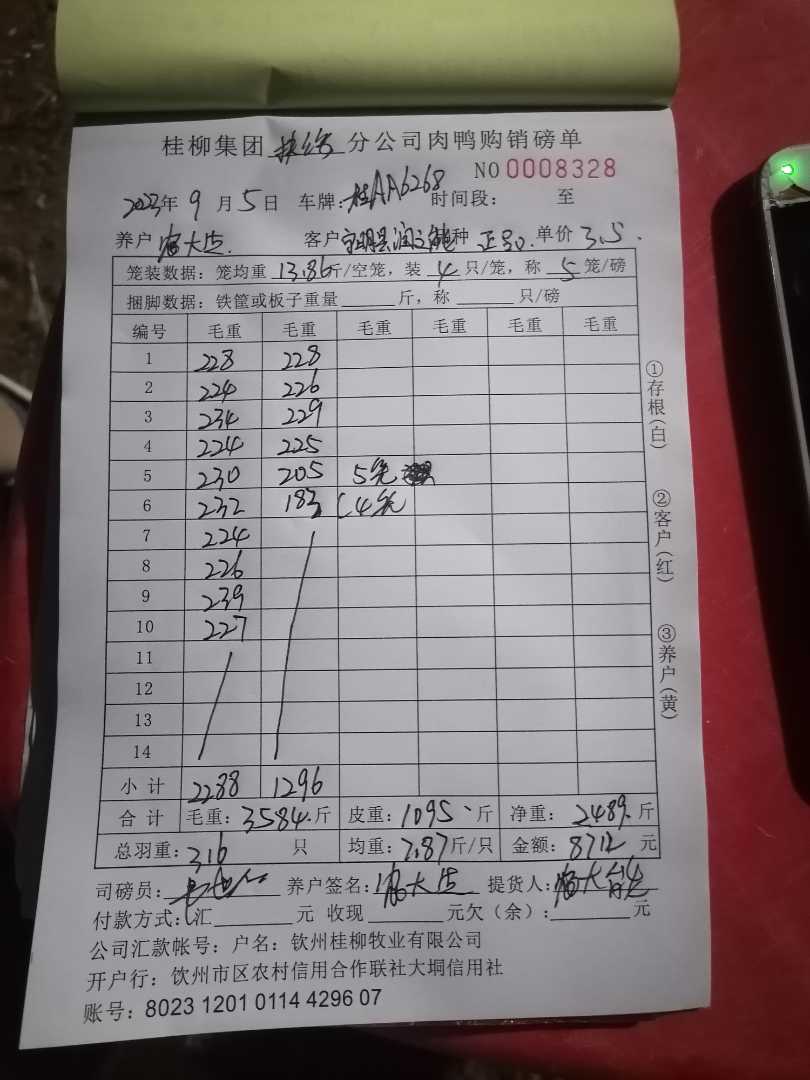 桂柳集团 分公司肉鸭购销磅单
NO 0008328
2023年 9 月 5 日 车牌: 桂AA6268 时间段: 至
养户 大 客户 明县润 种 正品 单价 3.5.
笼装数据: 笼均重 13.86 斤/空笼, 装 4 只/笼, 称 5 笼/磅
捆脚数据: 铁筐或板子重量 斤, 称 只/磅
编号 毛重 毛重 毛重 毛重 毛重 毛重
1 228 228
2 224 226
3 234 229
4 224 225
5 230 205 5笼
6 232 183 (4笼
7 224
8 226
9 239
10 227
11
12
13
14
小计 2288 1296
合计 毛重: 3584. 斤 皮重: 1095 斤 净重: 2489. 斤
总羽重: 316 只 均重: 7.87 斤/只 金额: 8712 元
司磅员: 养户签名: 大 提货人: 大
付款方式: (汇 元 收现 元欠(余): 元
公司汇款帐号: 户名: 钦州桂柳牧业有限公司
开户行: 钦州市区农村信用合作联社大垌信用社
账号: 8023 1201 0114 4296 07
①存根(白)
②客户(红)
③养户(黄)